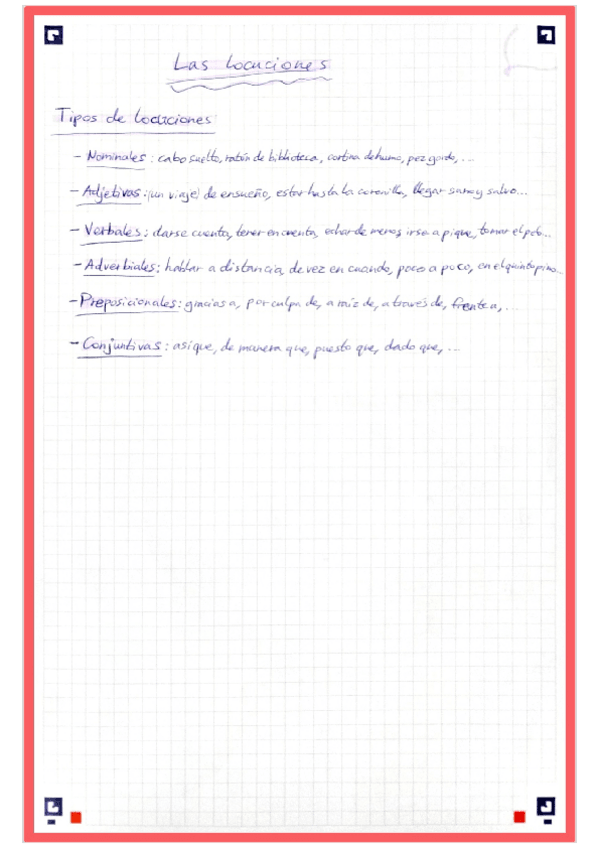 Las locuciones
Tipos de locuciones
- Nominales: cabo suelto, ratón de biblioteca, cortina de humo, pez gordo, ...
- Adjetivas: (un viaje) de ensueño, estar hasta la coronilla, llegar sano y salvo...
- Verbales: darse cuenta, tener en cuenta, echar de menos, irse a pique, tomar el pelo...
- Adverbiales: hablar a distancia, de vez en cuando, poco a poco, en el quinto pino...
- Preposicionales: gracias a, por culpa de, a raíz de, a través de, frente a, ...
- Conjuntivas: asi que, de manera que, puesto que, dado que, ...